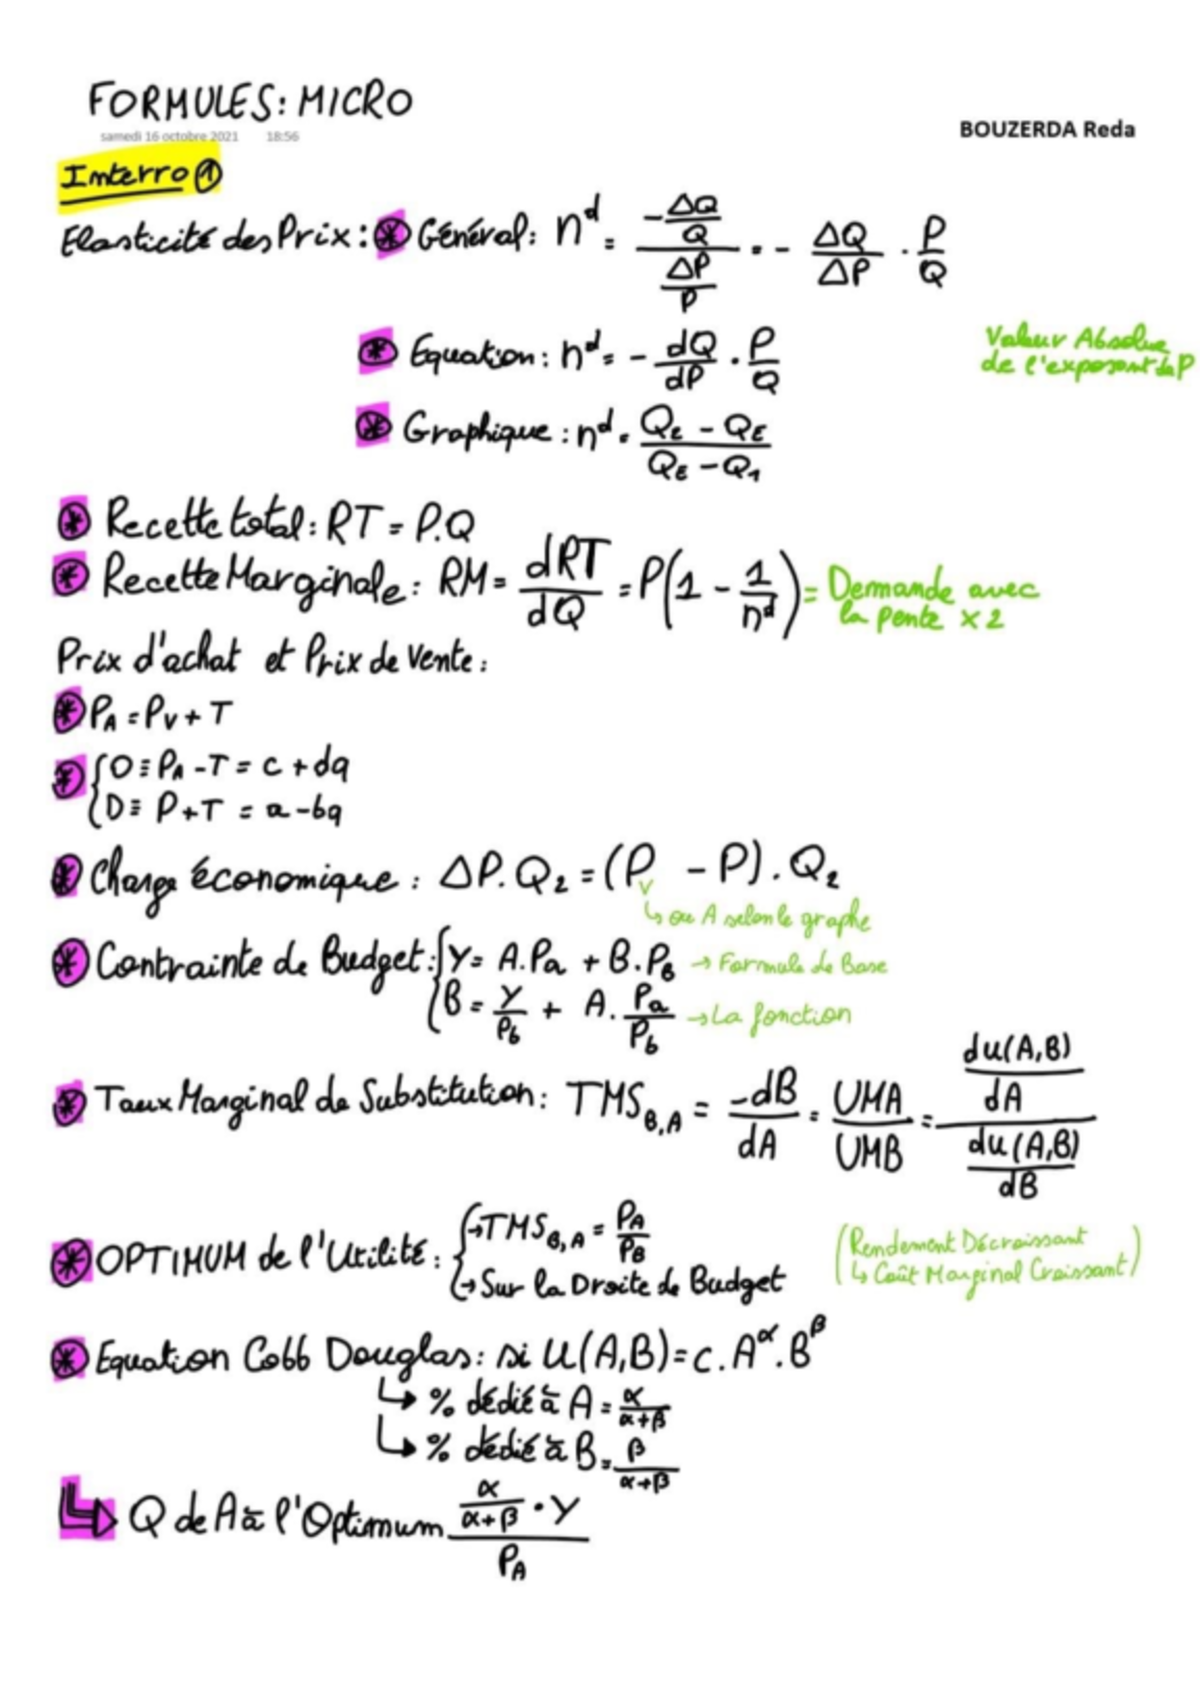 FORMULES: MICRO
samedi 16 octobre 2021 18:56
BOUZERDA Reda
Interro ①
Elasticité des Prix : ⊛ Général : n^d = (-ΔQ/Q)/(ΔP/P) = - ΔQ/ΔP · P/Q
⊛ Equation : n^d = - dQ/dP · P/Q
Valeur Absolue
de l'exposant de P
⊛ Graphique : n^d = (Q_E - Q_E)/(Q_E - Q_1)
⊛ Recette total : RT = P.Q
⊛ Recette Marginale : RM = dRT/dQ = P(1 - 1/n^d) = Demande avec
la pente x 2
Prix d'achat et Prix de Vente :
⊛ P_A = P_V + T
⊛ { O ≡ P_A - T = c + dq
D ≡ P + T = a - bq
⊛ Charge économique : ΔP.Q_2 = (P_V - P).Q_2
↳ ou A selon le graphe
⊛ Contrainte de Budget : { Y = A.Pa + B.P_B → Formule de Base
B = Y/P_b + A.Pa/P_b → La fonction
⊛ Taux Marginal de Substitution : TMS_B,A = -dB/dA = UMA/UMB = (du(A,B)/dA)/(du(A,B)/dB)
⊛ OPTIMUM de l'Utilité : { → TMS_B,A = P_A/P_B
→ Sur la Droite de Budget
(Rendement Décroissant
↳ Coût Marginal Croissant)
⊛ Equation Cobb Douglas : si U(A,B) = c.A^α.B^β
↳ % dédié à A = α/(α+β)
↳ % dédié à B = β/(α+β)
↳ Q de A à l'Optimum (α/(α+β) · Y)/P_A